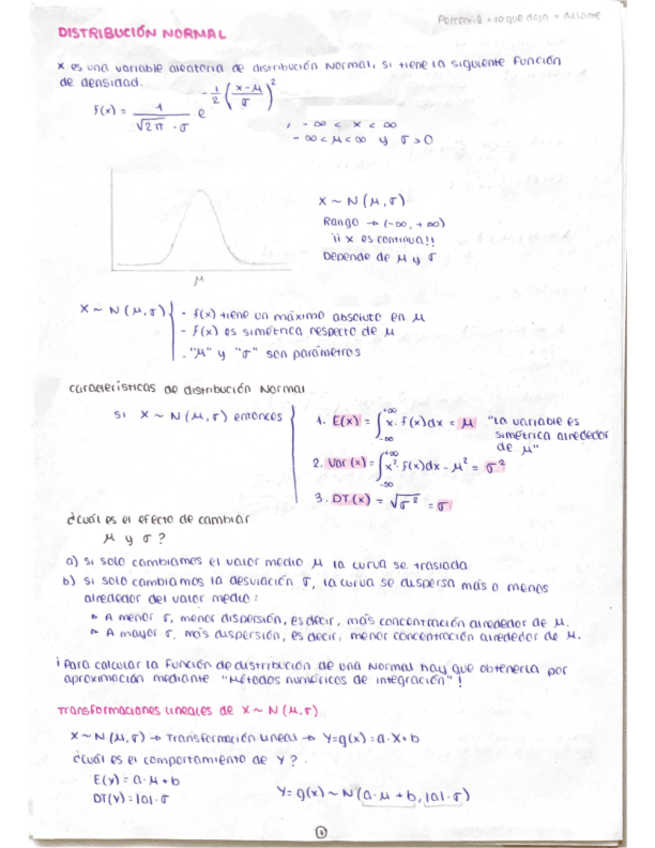 Percentil = lo que deja x delante
DISTRIBUCIÓN NORMAL
X es una variable aleatoria de distribución Normal, si tiene la siguiente función
de densidad.
f(x) = 1 / (√2π · σ) e^(-1/2 ((x-μ)/σ)^2)
, -∞ < x < ∞
-∞ < μ < ∞ y σ > 0
X ~ N(μ,σ)
Rango → (-∞, +∞)
¡¡ X es continua!!
Depende de μ y σ
μ
X ~ N(μ,σ) { - f(x) tiene un máximo absoluto en μ
- f(x) es simétrica respecto de μ
- "μ" y "σ" son parámetros
características de distribución Normal
si X ~ N(μ,σ) entonces
1. E(x) = ∫_{-∞}^{+∞} x · f(x)dx = μ "La variable es
simétrica alrededor
de μ"
2. Var(x) = ∫_{-∞}^{+∞} x² · f(x)dx - μ² = σ²
3. DT(x) = √σ² = σ
¿Cuál es el efecto de cambiar
μ y σ?
a) Si solo cambiamos el valor medio μ la curva se traslada
b) Si solo cambiamos la desviación σ, la curva se dispersa más o menos
alrededor del valor medio:
▹ A menor σ, menor dispersión, es decir, más concentración alrededor de μ.
▹ A mayor σ, más dispersión, es decir, menor concentración alrededor de μ.
¡Para calcular la función de distribución de una Normal hay que obtenerla por
aproximación mediante "Métodos numéricos de integración"!
Transformaciones lineales de X ~ N(μ,σ)
X ~ N(μ,σ) → Transformación lineal → Y=g(x)=a·X+b
¿Cuál es el comportamiento de Y?
E(Y) = a·μ+b
DT(Y) = |a|·σ
Y = g(x) ~ N(a·μ+b, |a|·σ)
1